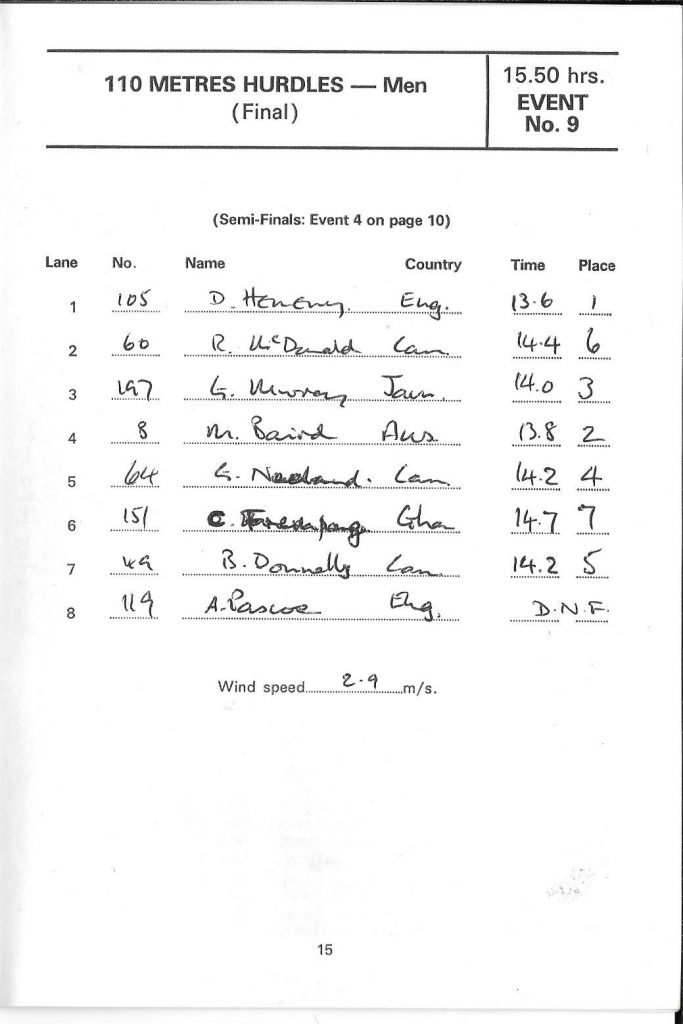 110 METRES HURDLES — Men
(Final)
15.50 hrs.
EVENT
No. 9
(Semi-Finals: Event 4 on page 10)
Lane No. Name Country Time Place
1 105 D. Hemery. Eng. 13.6 1
2 60 R. McDonald Can. 14.4 6
3 197 G. Murray Jam. 14.0 3
4 8 M. Baird Aus 13.8 2
5 64 G. Can. 14.2 4
6 151 C. Gha 14.7 7
7 49 B. Donnelly Can. 14.2 5
8 119 A. Pascoe Eng. D.N.F.
Wind speed 2.9 m/s.
15